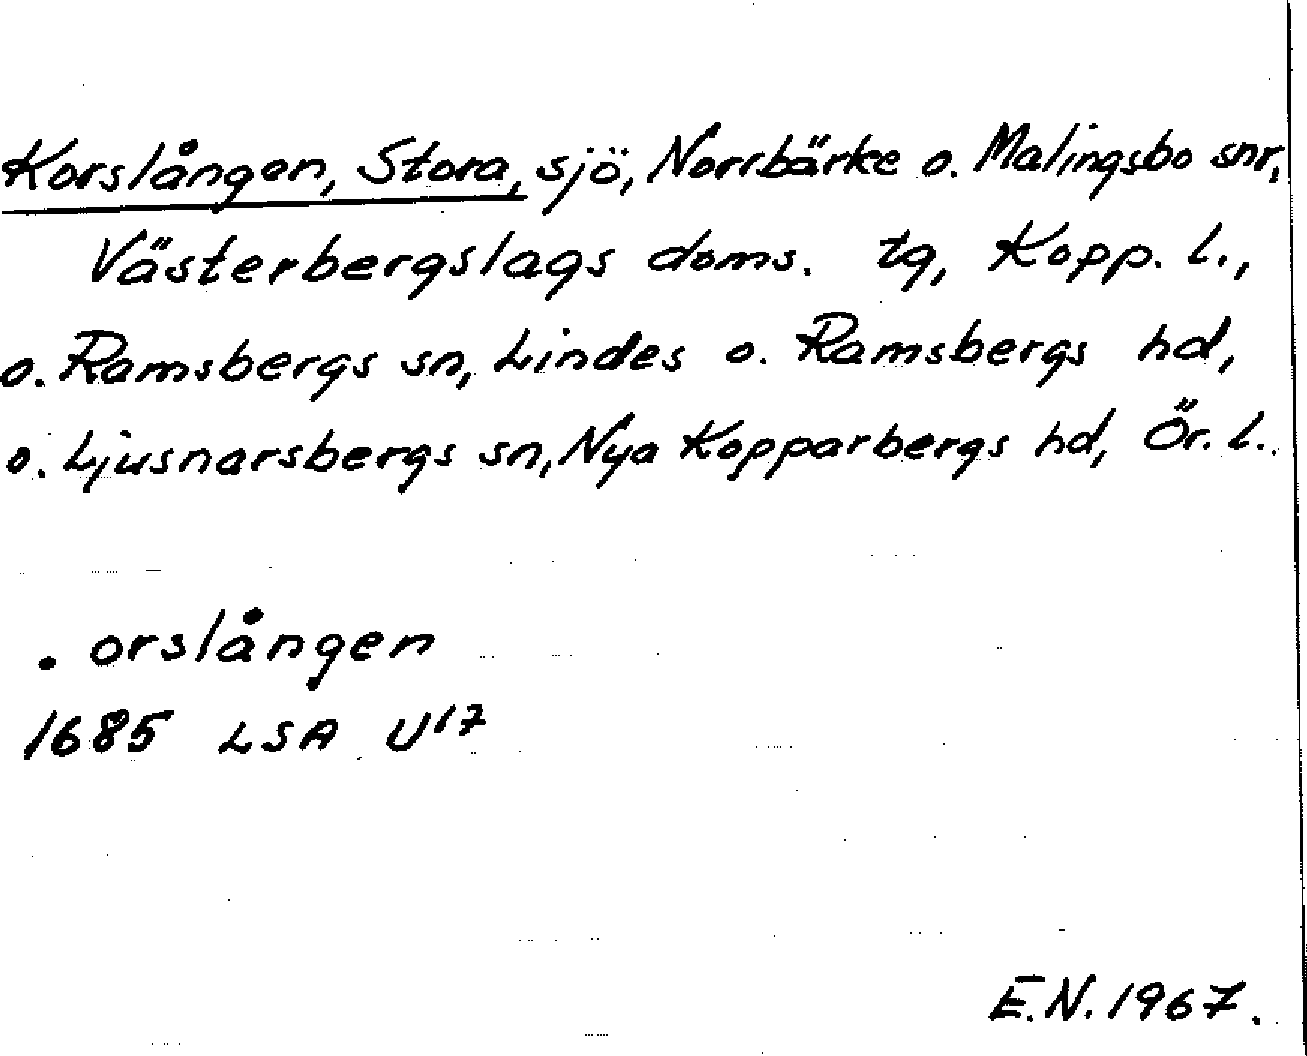 Korslången, Stora, sjö, Norrbärke o. Malingsbo snr,
Västerbergslags doms. tg, Kopp. l.,
o. Ramsbergs sn, Lindes o. Ramsbergs hd,
o. Ljusnarsbergs sn, Nya Kopparbergs hd, Ör. l..
. orslången
1685 LSA U17
E.N. 1967.